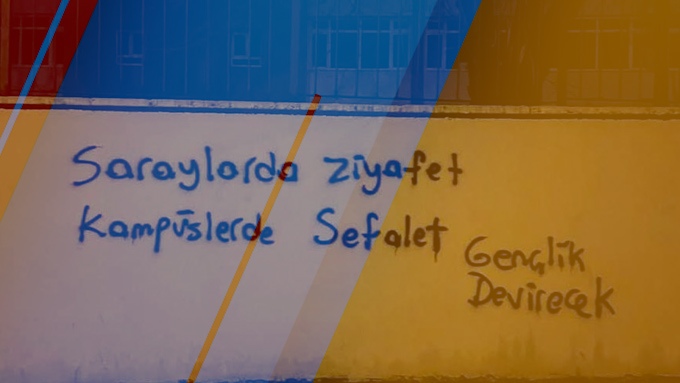 Saraylarda ziyafet
Kampüslerde Sefalet
Gençlik
Devirecek